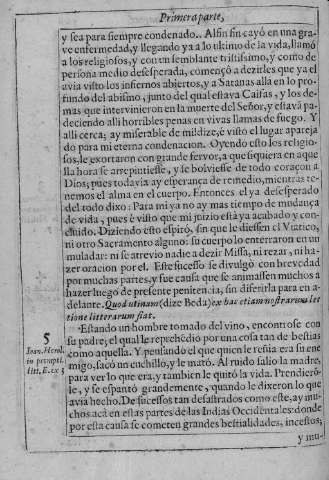 Primera parte,
y sea para siempre condenado. Al fin fin cayó en una gra-
ve enfermedad, y llegando ya a lo ultimo de la vida, llamó
a los religiosos, y con semblante tristissimo, y como de
persona medio desesperada, començó a dezirles que ya el
avia visto los infiernos abiertos, y a Satanas alla en lo pro-
fundo del abismo, junto del qual estava Caifas, y los de-
mas que intervinieron en la muerte del Señor, y estavā pa-
deciendo alli horribles penas en vivas llamas de fuego. Y
alli cerca; ay miserable de mi dize, é visto el lugar apareja
do para mi eterna condenacion. Oyendo esto los religio-
sos, le exortaron con grande fervor, a que siquiera en aque
lla hora se arrepintiesse, y se bolviesse de todo coraçon a
Dios; pues todavia ay esperança de remedio, mientras te-
nemos el alma en el cuerpo. Entonces el ya desesperado
del todo dixo: Para mi ya no ay mas tiempo de mudança
de vida, pues é visto que mi juizio está ya acabado y con-
cluido. Diziendo esto espiró, sin que le diessen el Viatico,
ni otro Sacramento alguno: su cuerpo lo enterraron en un
muladar: ni se atrevio nadie a dezir Missa, ni rezar, ni ha-
zer oracion por el. Este sucesso se divulgó con brevedad
por muchas partes, y fue causa que se animassen muchos a
hazer luego de presente penitencia, sin diferirla para en a-
delante. Quod utinam (dize Beda) ex hac etiam nostrarum le
ctione litterarum fiat.
5
Ioan. Herol.
in promptu.
lit. E. ex 5
Estando un hombre tomado del vino, encontrose con
su padre; el qual le reprehēdio por una cosa tan de bestias
como aquella. Y pensando el que quien le reñia era su ene
migo, sacó un cuchillo, y le mató. Al ruido salio la madre,
para ver lo que era, y tambien le quitó la vida. Prendierō-
le, y se espantó grandemente, quando le dixeron lo que
avia hecho. De sucessos tan desastrados como este, ay mu-
chos acá en estas partes de las Indias Occidētales: donde
por esta causa se cometen grandes bestialidades, incestos,
y mu-